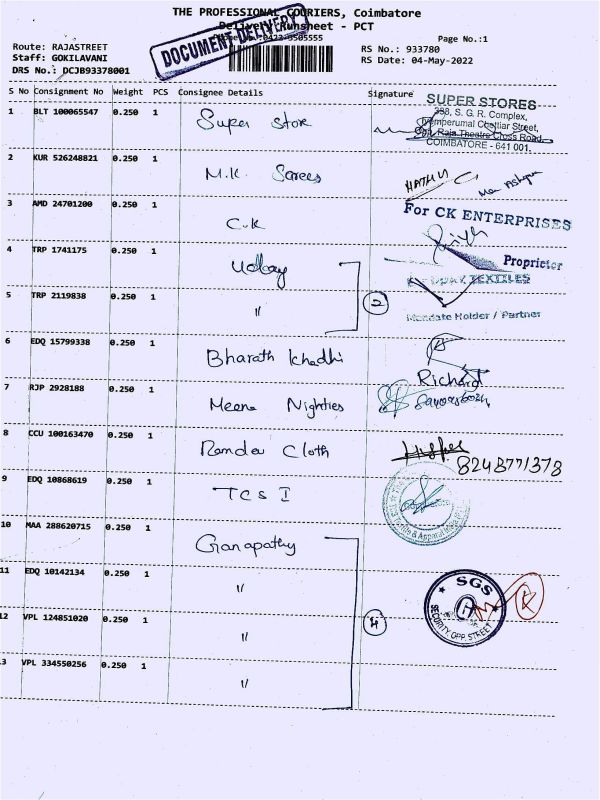 THE PROFESSIONAL COURIERS, Coimbatore
Delivery Runsheet - PCT
DOCUMENT DELIVERY
Page No.:1
Route: RAJASTREET
RS No.: 933780
Staff: GOKILAVANI
RS Date: 04-May-2022
DRS No.: DCJB93378001
S No Consignment No Weight PCS Consignee Details Signature
1 BLT 100065547 0.250 1 Super Store
SUPER STORES
398, S. G. R. Complex,
Perumal Chettiar Street,
Raja Theatre Cross Road,
COIMBATORE - 641 001.
2 KUR 526248821 0.250 1 M.K. Sarees
3 AMD 24701200 0.250 1 C.K
For CK ENTERPRISES
Proprietor
4 TRP 1741175 0.250 1 Udhay
TEXTILES
5 TRP 2119838 0.250 1 〃 2
Mandate Holder / Partner
6 EDQ 15799338 0.250 1 Bharath Khadhi
Richard
7 RJP 2928188 0.250 1 Meena Nighties
8 CCU 100163470 0.250 1 Ramdev Cloth
8248771378
9 EDQ 10868619 0.250 1 TCS I
10 MAA 288620715 0.250 1 Ganapathy
11 EDQ 10142134 0.250 1 〃
SGS
SECURITY OPP. STREET
12 VPL 124851020 0.250 1 〃 4
3 VPL 334550256 0.250 1 〃